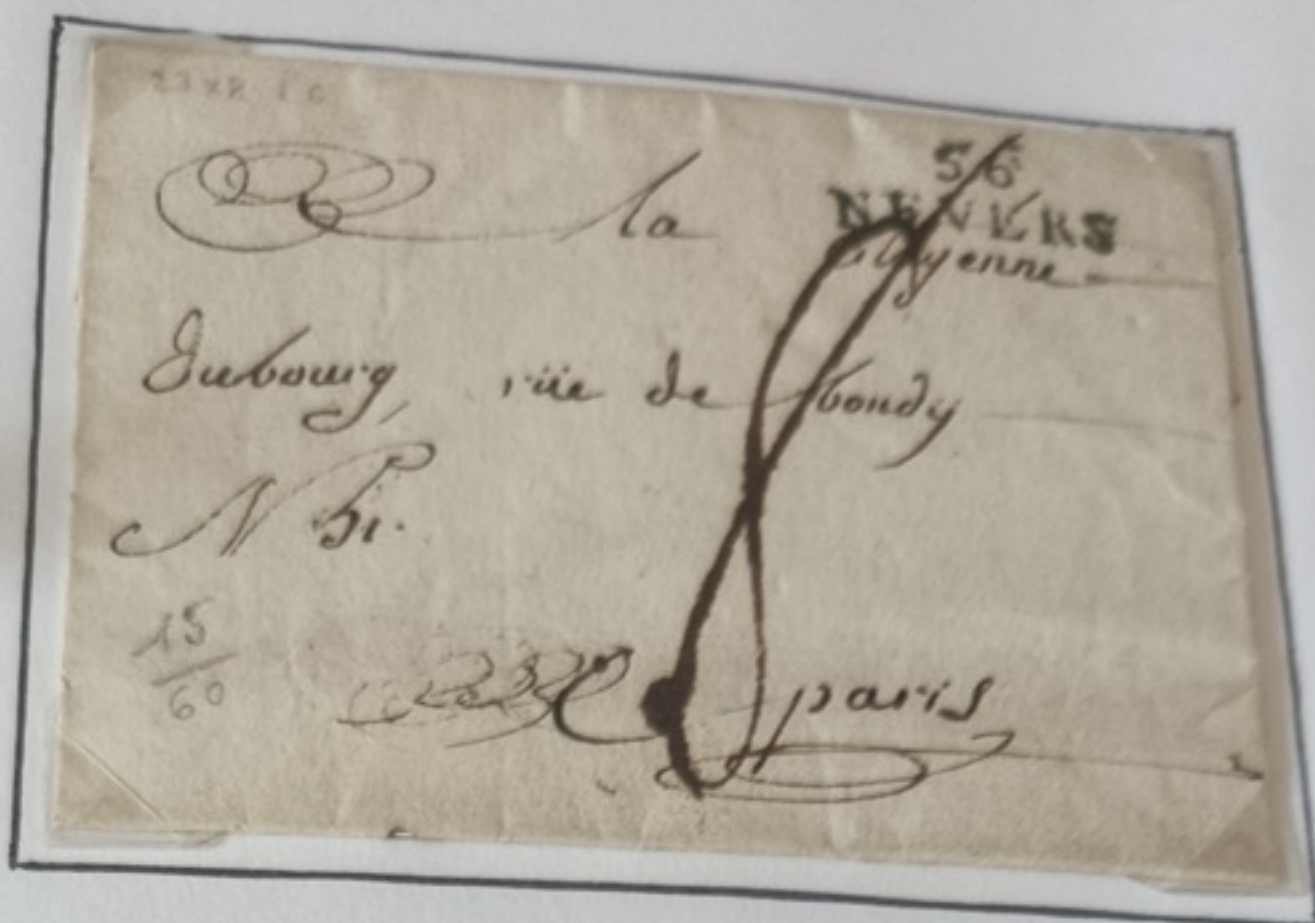 56
NEVERS
la Citoyenne
Dubourg, rüe de bondy
N 51.
15
60
paris